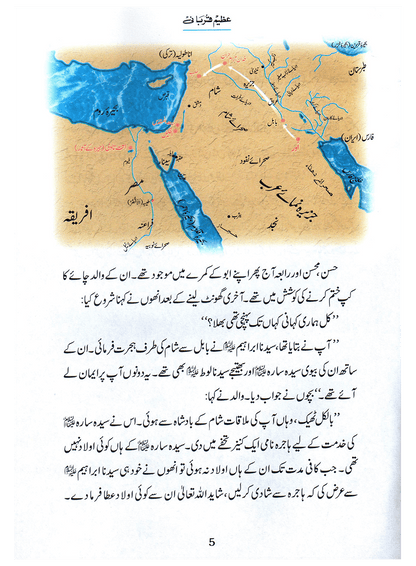 عظیم قربانی
اناطولیہ (ترکی)
طبرستان
نینویٰ
جزیرہ
شام
قبرص
بحیرہ روم
دمشق
بابل
فارس (ایران)
صحرائے شام
صحرائے نفود
سیناء
مصر
جزیرہ نمائے عرب
افریقہ
فراعنہ
نجد
صحرائے نوبیہ
حسن محسن اور رابعہ آج پھر اپنے ابو کے کمرے میں موجود تھے۔ ان کے والد چائے کا
کپ ختم کرنے کی کوشش میں تھے۔ آخری گھونٹ لینے کے بعد انھوں نے کہنا شروع کیا:
’’کل ہماری کہانی کہاں تک پہنچی تھی بھلا؟‘‘
’’آپ نے بتایا تھا، سیدنا ابراہیم علیہ السلام نے بابل سے شام کی طرف ہجرت فرمائی۔ ان کے
ساتھ ان کی بیوی سیدہ سارہ علیہا السلام اور بھتیجے سیدنا لوط علیہ السلام بھی تھے۔ یہ دونوں آپ پر ایمان لے
آئے تھے۔‘‘ بچوں نے جواب دیا۔ والد نے کہا:
’’بالکل ٹھیک، وہاں آپ کی ملاقات شام کے بادشاہ سے ہوئی۔ اس نے سیدہ سارہ علیہا السلام
کی خدمت کے لیے ہاجرہ نامی ایک کنیز تحفے میں دی۔ سیدہ سارہ علیہا السلام کے ہاں کوئی اولاد نہیں
تھی۔ جب کافی مدت تک ان کے ہاں اولاد نہ ہوئی تو انھوں نے خود ہی سیدنا ابراہیم علیہ السلام
سے عرض کی کہ ہاجرہ سے شادی کر لیں، شاید اللہ تعالیٰ ان سے کوئی اولاد عطا فرما دے۔
5